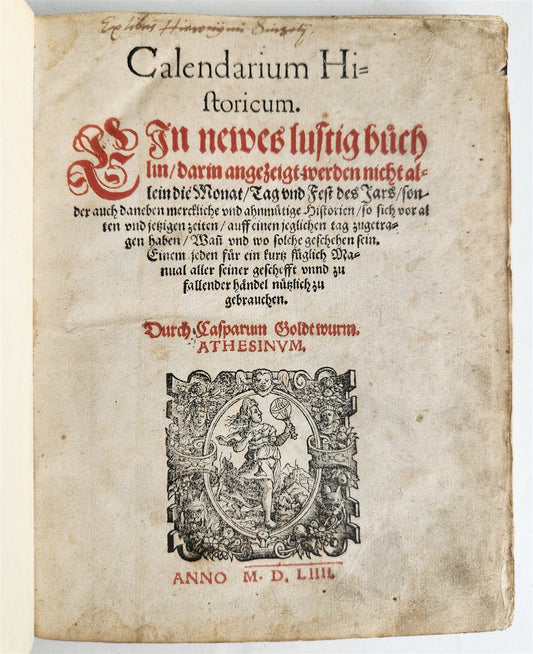 Ex libris Hieronymi
Calendarium Hi=
storicum.
EIn newes lustig bůch
lin/ darin angezeigt werden nicht al=
lein die Monat/ Tag vnd Fest des Jars/ son=
der auch daneben merckliche vnd ahnmütige Historien/ so sich vor al
ten vnd jetzigen zeiten/ auff einen jeglichen tag zugetra=
gen haben/ Wañ vnd wo solche geschehen sein.
Einem jeden für ein kurtz füglich Ma=
nual aller seiner geschefft vnnd zu
fallender händel nützlich zu
gebrauchen.
Durch Casparum Goldtwurm.
ATHESINVM.
ANNO M. D. LIIII.